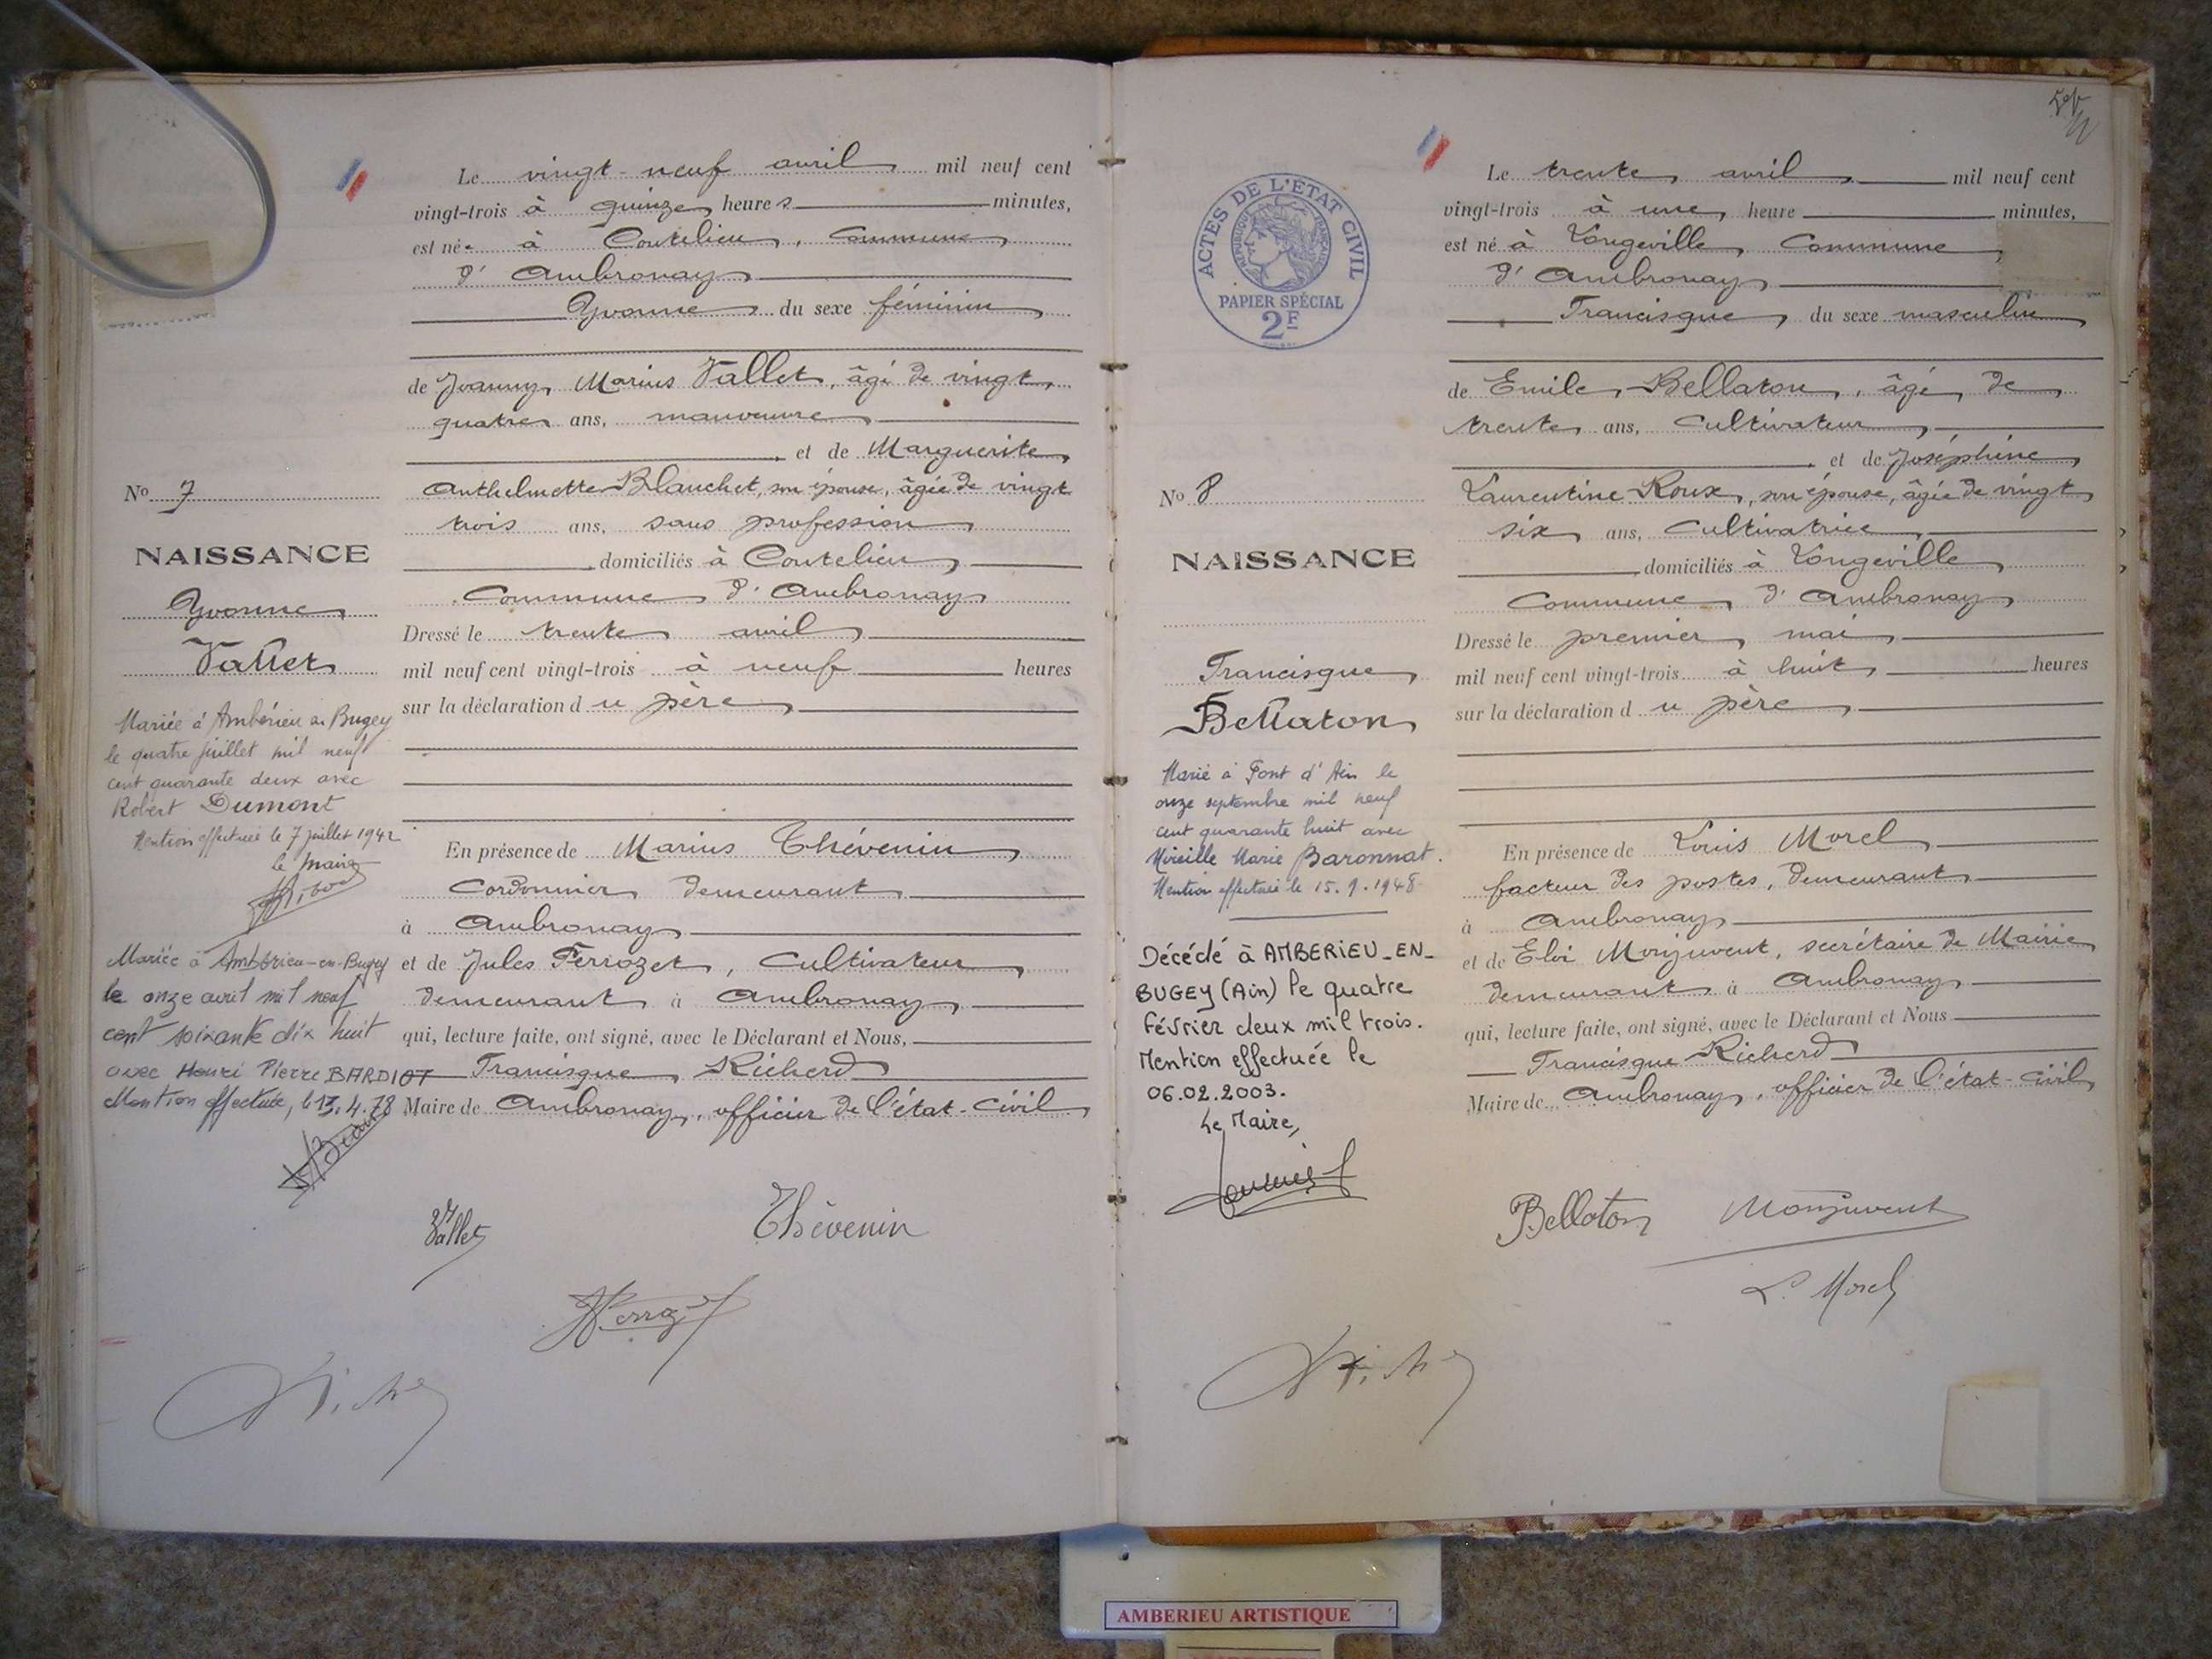 Le vingt-neuf avril mil neuf cent
vingt-trois à quinze heures minutes,
est née à Coutelieu, Commune
d'Ambronay
Yvonne du sexe féminin
de Joanny, Marius Vallet, âgé de vingt
quatre ans, manoeuvre
et de Marguerite
Anthelmette Blanchet, son épouse, âgée de vingt
trois ans, sans profession
domiciliés à Coutelieu
Commune d'Ambronay
Dressé le trente avril
mil neuf cent vingt-trois à neuf heures
sur la déclaration du père
En présence de Marius Thévenin
Cordonnier demeurant
à Ambronay
et de Jules Ferrozet, Cultivateur
demeurant à Ambronay
qui, lecture faite, ont signé, avec le Déclarant et Nous,
Francisque Richerd
Maire de Ambronay, officier de l'état-civil
No 7
NAISSANCE
Yvonne
Vallet
Mariée à Ambérieu en Bugey
le quatre juillet mil neuf
cent quarante deux avec
Robert Dumont
Mention effectuée le 7 juillet 1942
le Maire
Mariée à Ambérieu-en-Bugey
le onze avril mil neuf
cent soixante dix huit
avec Henri Pierre BARDIOT
Mention effectuée, le 13.4.78
Vallet
Thévenin
ACTES DE L'ETAT CIVIL
REPUBLIQUE FRANÇAISE
PAPIER SPÉCIAL
2F
Le trente avril mil neuf cent
vingt-trois à une heure minutes,
est né à Longeville Commune
d'Ambronay
Francisque du sexe masculin
de Emile Bellaton, âgé de
trente ans, Cultivateur
et de Joséphine
Laurentine Roux, son épouse, âgée de vingt
six ans, Cultivatrice
domiciliés à Longeville
Commune d'Ambronay
Dressé le premier mai
mil neuf cent vingt-trois à huit heures
sur la déclaration du père
En présence de Louis Morel
facteur des postes, demeurant
à Ambronay
et de Eloi Monjuvent, secrétaire de Mairie
demeurant à Ambronay
qui, lecture faite, ont signé, avec le Déclarant et Nous
Francisque Richerd
Maire de Ambronay, officier de l'état-civil
No 8
NAISSANCE
Francisque
Bellaton
Marié à Pont d'Ain le
onze septembre mil neuf
cent quarante huit avec
Mireille Marie Baronnat.
Mention effectuée le 15.9.1948
Décédé à AMBERIEU_EN_
BUGEY (Ain) le quatre
février deux mil trois.
Mention effectuée le
06.02.2003.
Le Maire,
Bellaton Monjuvent
L. Morel
AMBERIEU ARTISTIQUE